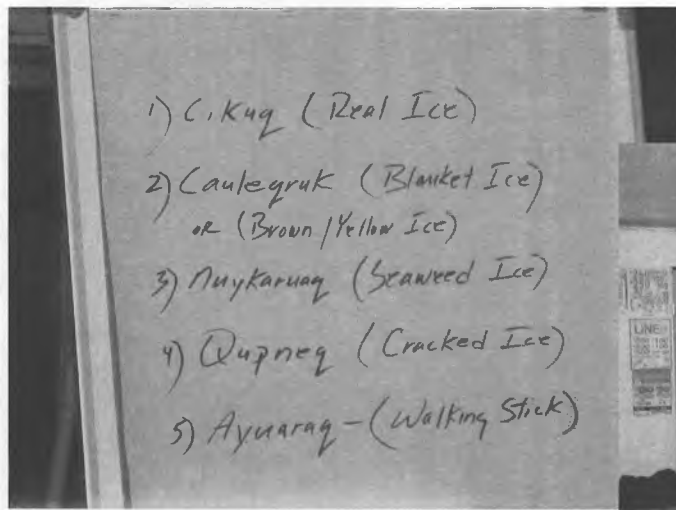 1) Cikuq (Real Ice)
2) Cauleqruk (Blanket Ice)
or (Brown/Yellow Ice)
3) Nuykaruaq (Seaweed Ice)
4) Qupneq (Cracked Ice)
5) Ayuaraq - (Walking Stick)
LINE